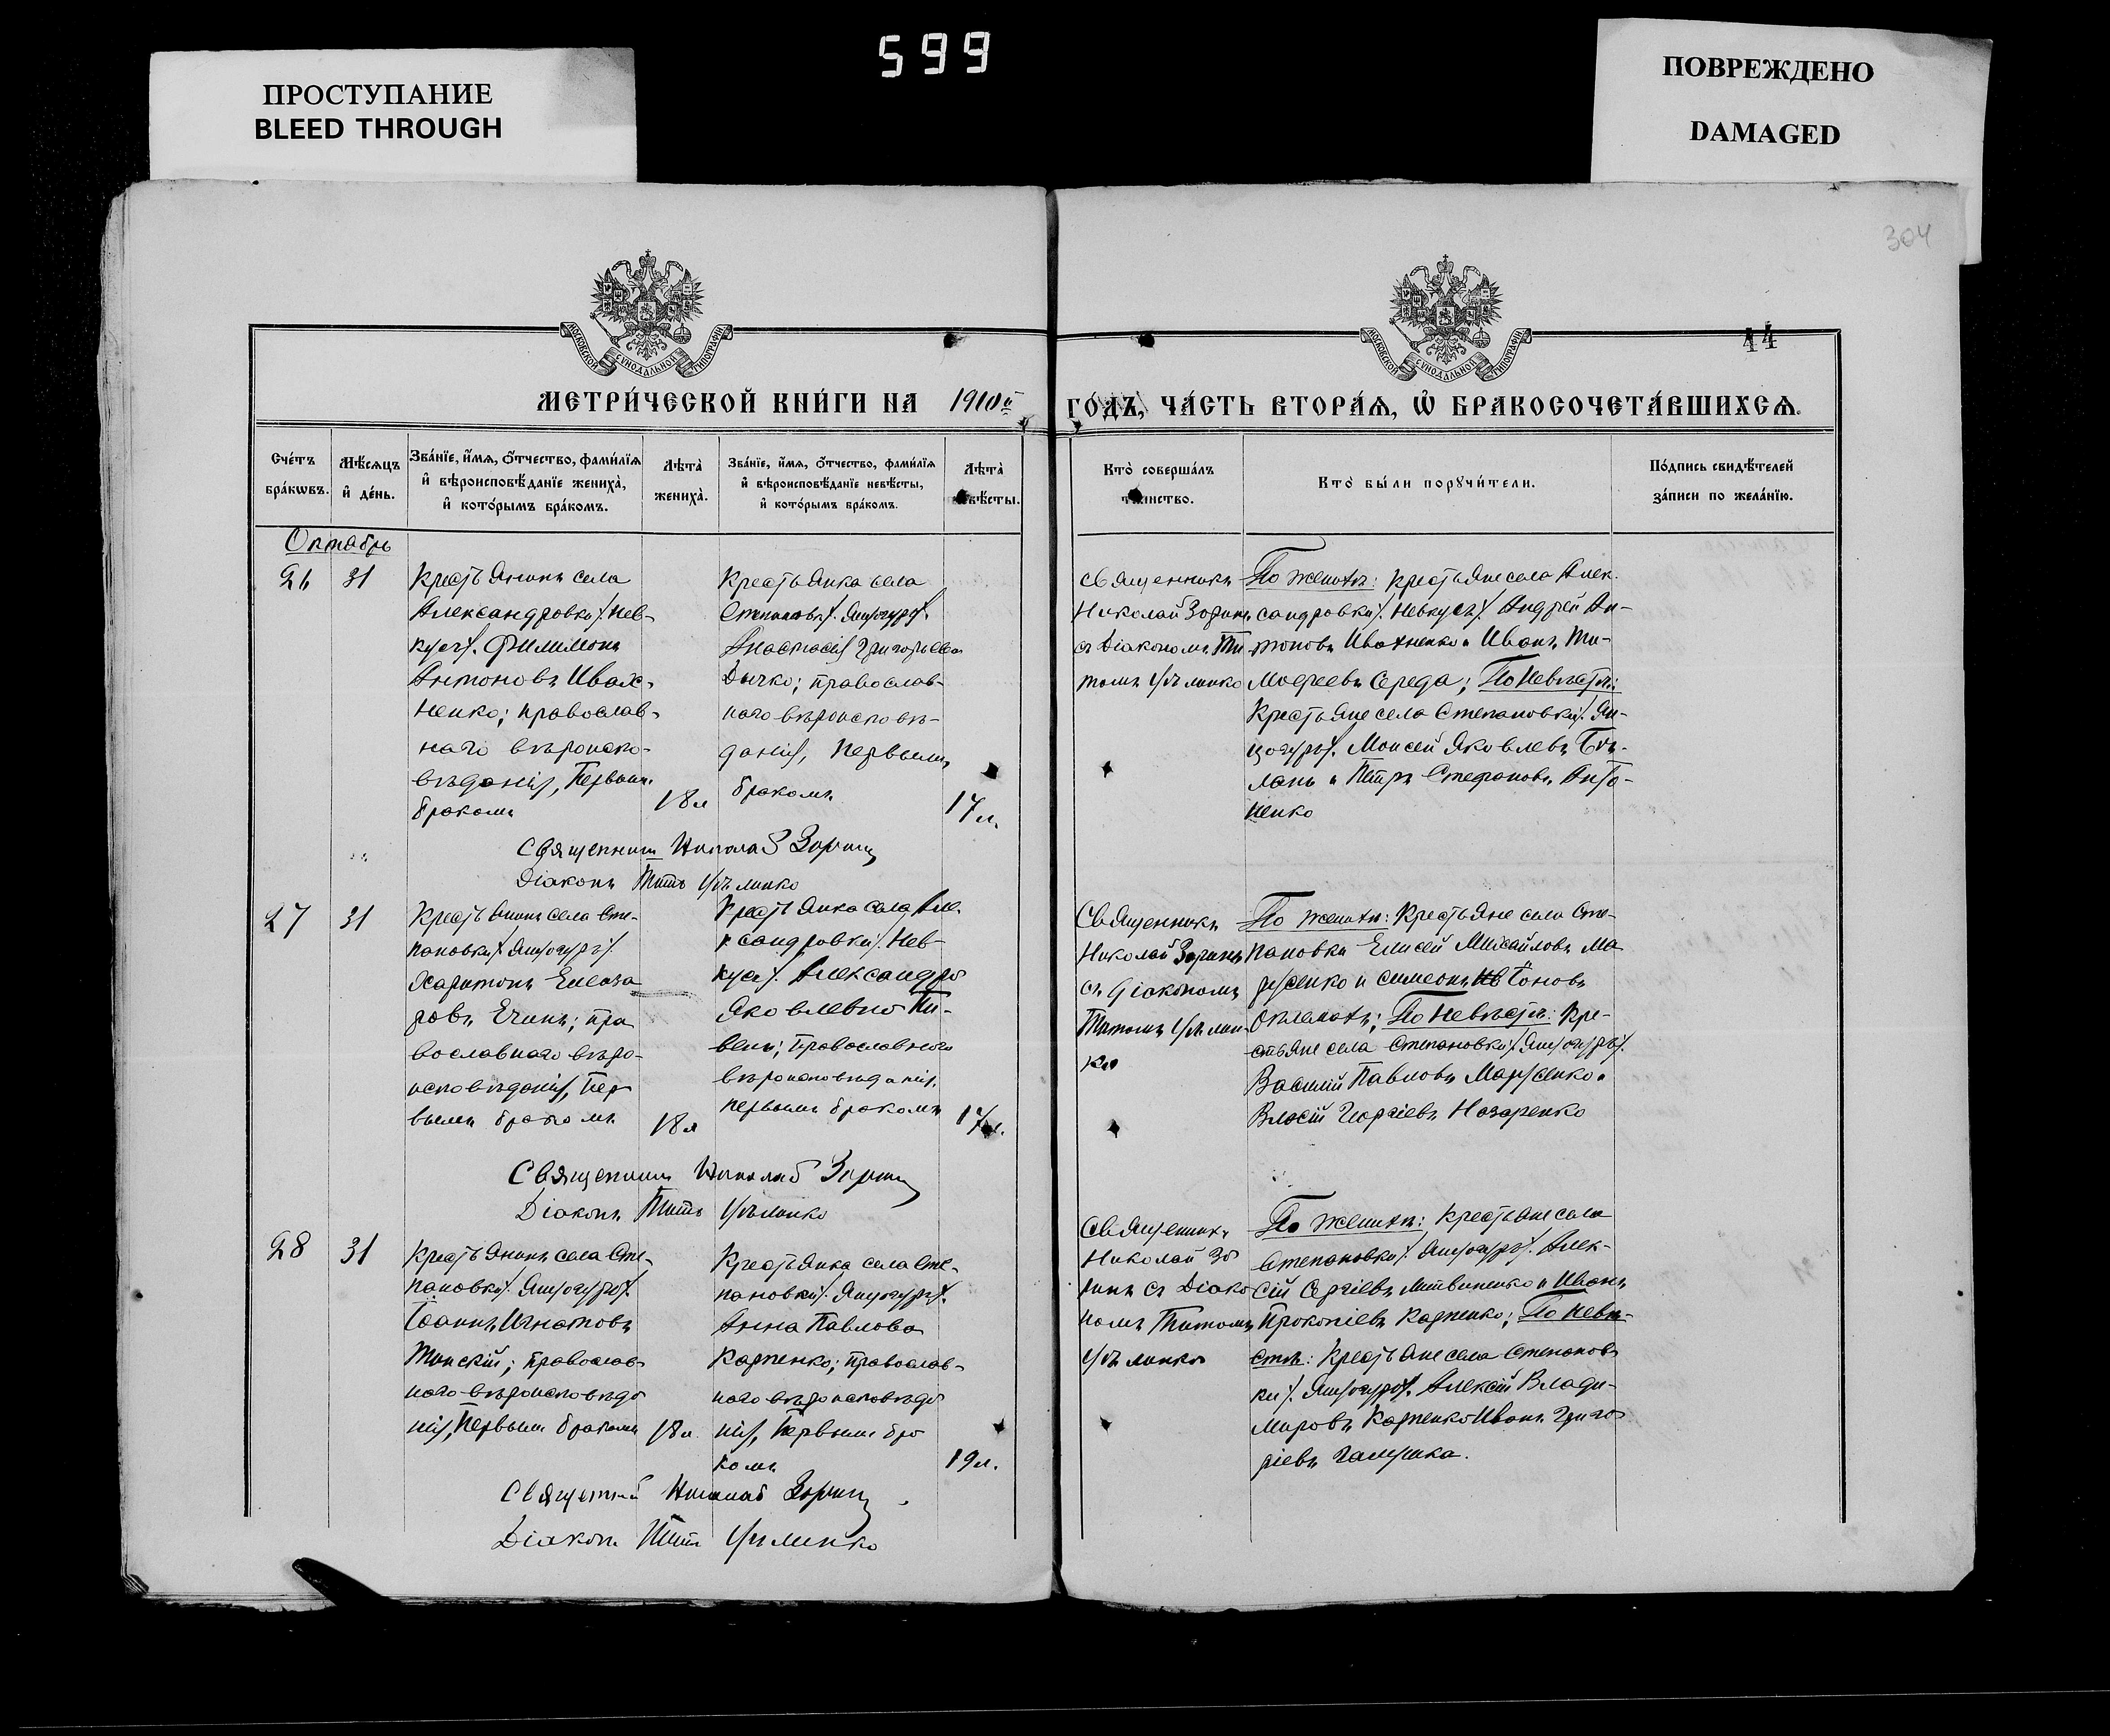 599
ПРОСТУПАНИЕ
BLEED THROUGH
ПОВРЕЖДЕНО
DAMAGED
304
МОСКОВСКОЙ СѴНОДАЛЬНОЙ ТИПОГРАФІИ
МОСКОВСКОЙ СѴНОДАЛЬНОЙ ТИПОГРАФІИ
44
МЕТРИ́ЧЕСКОЙ КНИ́ГИ НА 1910й
ГО́ДЪ, ЧА́СТЬ ВТОРА́Ѧ, Ѽ БРАКОСОЧЕТА́ВШИХСѦ.
Сче́тъ
бра́кѡвъ.
Мѣ́сѧцъ
и҆ де́нь.
Зва́нїе, и҆́мѧ, ѻ҆́тчество, фами́лїѧ
и҆ вѣроисповѣ́данїе жениха̀,
и҆ кото́рымъ бра́комъ.
Лѣта̀
жениха̀.
Зва́нїе, и҆́мѧ, ѻ҆́тчество, фами́лїѧ
и҆ вѣроисповѣ́данїе невѣ́сты,
и҆ кото́рымъ бра́комъ.
Лѣта̀
невѣ́сты.
Кто̀ соверша́лъ
та́инство.
Кто̀ бы́ли порꙋчи́тели.
По́дпись свидѣ́телей
за́писи по жела́нїю.
Октябрь
26
31
Крестьянинъ села
Александровки /Нев-
кусъ/. Филимонъ
Антоновъ Ивах-
ненко; православ-
наго вѣроиспо-
вѣданія, Первымъ
бракомъ
18 л
Крестьянка села
Степановки
Анастасія Григорьева
Дычко; православ-
наго вѣроисповѣ-
данія, Первымъ
бракомъ
17 л.
Священникъ
Николай Зоринъ
съ Діакономъ Ти-
томъ
По женихѣ: крестьяне села Алек-
сандровки /Невкусъ/ Андрей Ан-
тоновъ Ивахненко и Иванъ Ти-
моѳеевъ Середа; По Невѣстѣ:
Крестьяне села Степановки
Моисей Яковлевъ
и Петръ Стефановъ
ненко
Священникъ Николай Зоринъ
Діаконъ Титъ
27
31
Крестьянинъ села Сте-
пановки
Харитонъ Елеаза-
ровъ Ечинъ; пра-
вославнаго вѣро-
исповѣданія, Пер-
вымъ бракомъ
18 л
Крестьянка села Але-
ксандровки /Нев-
кусъ/. Александра
Яковлевна Пи-
вень; Православнаго
вѣроисповѣданія,
первымъ бракомъ
17 л.
Священникъ
Николай Зоринъ
съ Діакономъ
Титомъ
По женихѣ: Крестьяне села Сте-
пановки Елисей Михайловъ Ма-
русенко и Симеонъ
По Невѣстѣ: Кре-
стьяне села Степановки
Василій Павловъ Марусенко и
Власій Георгіевъ Назаренко
Священникъ Николай Зоринъ
Діаконъ Титъ
28
31
Крестьянинъ села Сте-
пановки
Іоаннъ Игнатовъ
Тонскій; Православ-
наго вѣроисповѣда-
нія, Первымъ бракомъ
18 л.
Крестьянка села Сте-
пановки
Анна Павлова
Карпенко; православ-
наго вѣроисповѣда-
нія, Первымъ бра-
комъ
19 л.
Священникъ
Николай Зо-
ринъ съ Діако-
номъ Титомъ
По женихѣ: Крестьяне села
Степановки Алек-
сій Сергіевъ Литвиненко и Иванъ
Прокопіевъ Карпенко; По невѣ-
стѣ: Крестьяне села Степанов-
ки Алексій Влади-
мировъ Карпенко Иванъ Григо-
ріевъ Галушка.
Священникъ Николай Зоринъ
Діаконъ Титъ